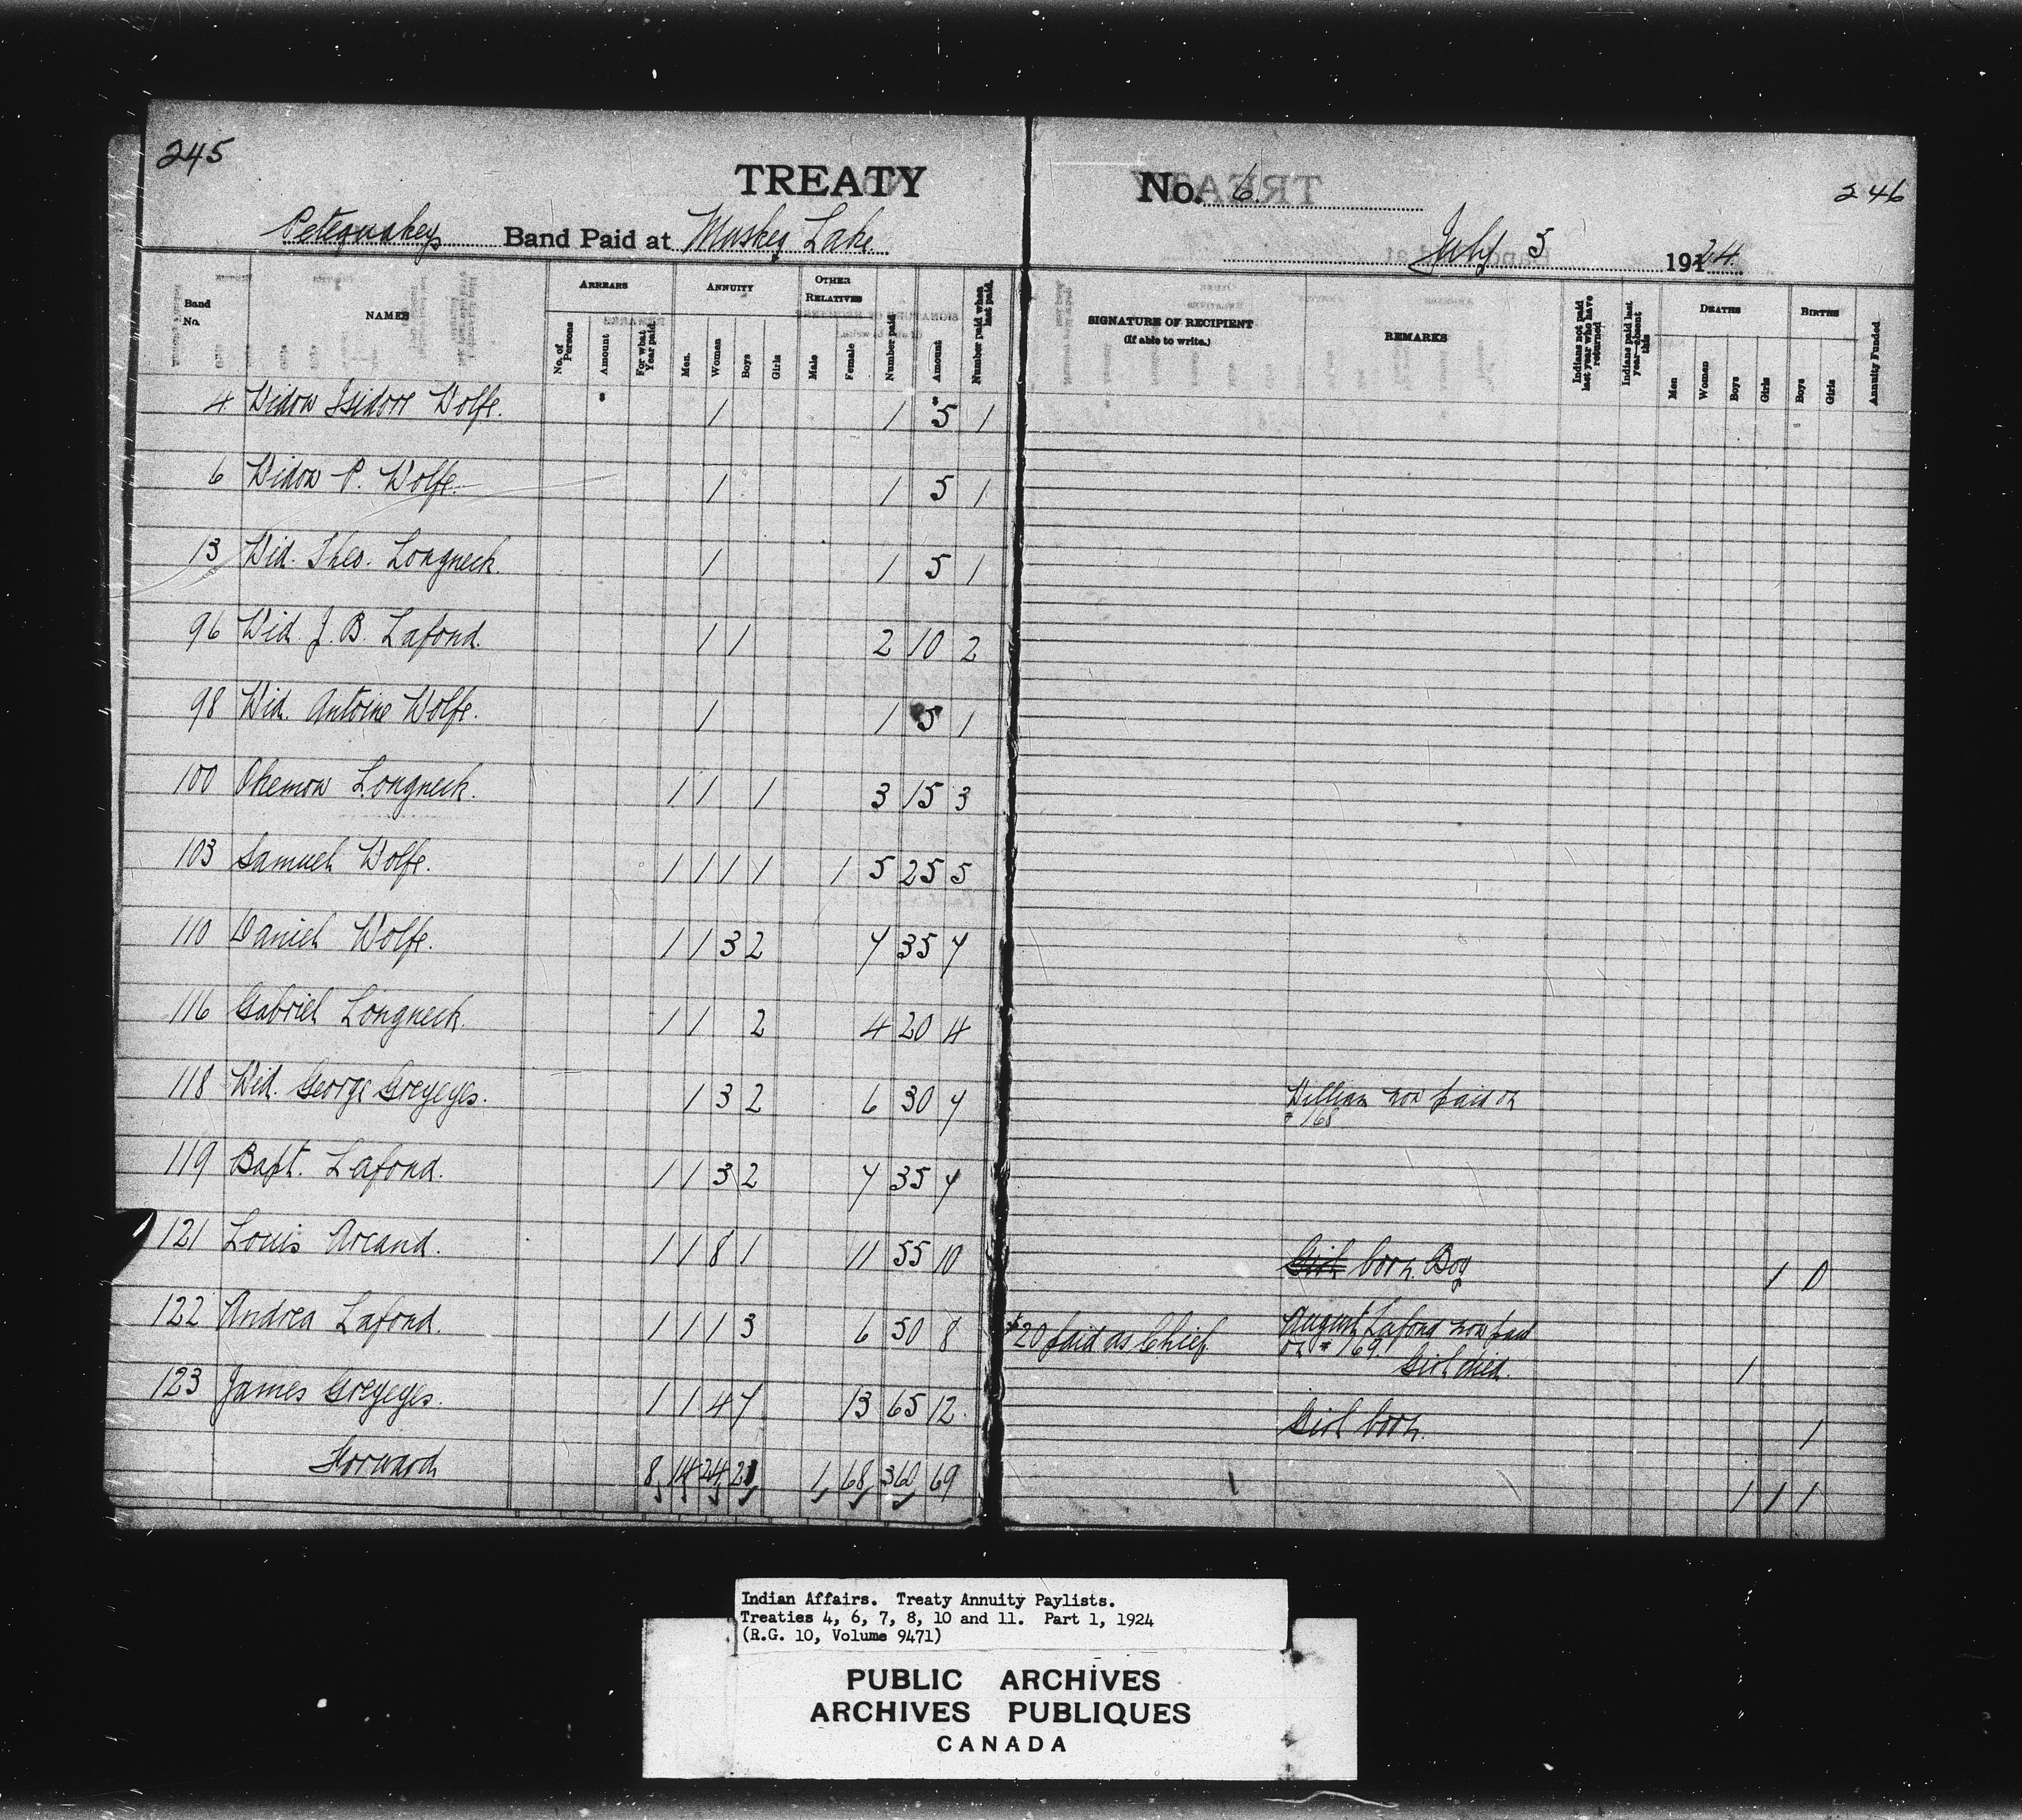 245
TREATY No. 6. 246
Petequakeys Band Paid at Muskeg Lake July 5 1924
Band No. NAMES ARREARS No. of Persons Amount For what Year paid. ANNUITY Men. Women Boys Girls OTHER RELATIVES Male Female Number paid Amount Number paid when last paid. SIGNATURE OF RECIPIENT (If able to write.) REMARKS Indians not paid last year who have returned Indians paid last year—absent this DEATHS Men Women Boys Girls BIRTHS Boys Girls Annuity Funded
4 Widow Isidore Wolfe. 1 1 5 1
6 Widow P. Wolfe. 1 1 5 1
13 Wid. Theo. Longneck. 1 1 5 1
96 Wid. J. B. Lafond. 1 1 2 10 2
98 Wid. Antoine Wolfe. 1 1 5 1
100 Okemow Longneck. 1 1 1 3 15 3
103 Samuel Wolfe. 1 1 1 1 1 5 25 5
110 Daniel Wolfe. 1 1 3 2 7 35 7
116 Gabriel Longneck. 1 1 2 4 20 4
118 Wid. George Greyeyes. 1 3 2 6 30 7 William now paid on
# 168
119 Bapt. Lafond. 1 1 3 2 7 35 7
121 Louis Arcand. 1 1 8 1 11 55 10 Girl born. Boy 1 0
122 Andrea Lafond. 1 1 1 3 6 50 8 $20 paid as Chief August Lafond now paid
on # 169.
Girl died. 1
123 James Greyeyes. 1 1 4 7 13 65 12 Girl born. 1
Forward 8 14 24 21 1 68 360 69 1 1 1
Indian Affairs. Treaty Annuity Paylists.
Treaties 4, 6, 7, 8, 10 and 11. Part 1, 1924
(R.G. 10, Volume 9471)
PUBLIC ARCHIVES
ARCHIVES PUBLIQUES
CANADA